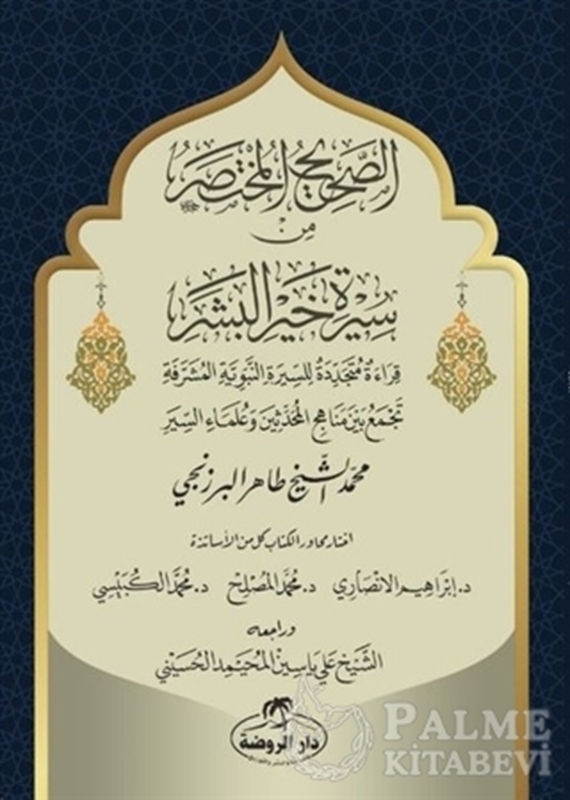 الصَّحِيحُ المُخْتَصَرُ
مِنْ
سِيرَةِ خَيْرِ البَشَرِ
قِرَاءَةٌ مُتَجَدِّدَةٌ لِلسِّيرَةِ النَّبَوِيَّةِ المُشَرَّفَةِ
تَجْمَعُ بَيْنَ مَنَاهِجِ المُحَدِّثِينَ وَعُلَمَاءِ السِّيَرِ
محمّد الشّيخ طاهر البرزنجي
اختار محاور الكتاب كل من الأساتذة
د. إِبْرَاهِيم الانْصَارِي د. مُحمَّد المُصْلِح د. مُحمَّد الكُبَيْسِي
وراجعه
الشَّيْخ عَلي يَاسِين المُحَيْمِد الحُسَيْنِي
دار الروضة
PALME
KİTABEVİ